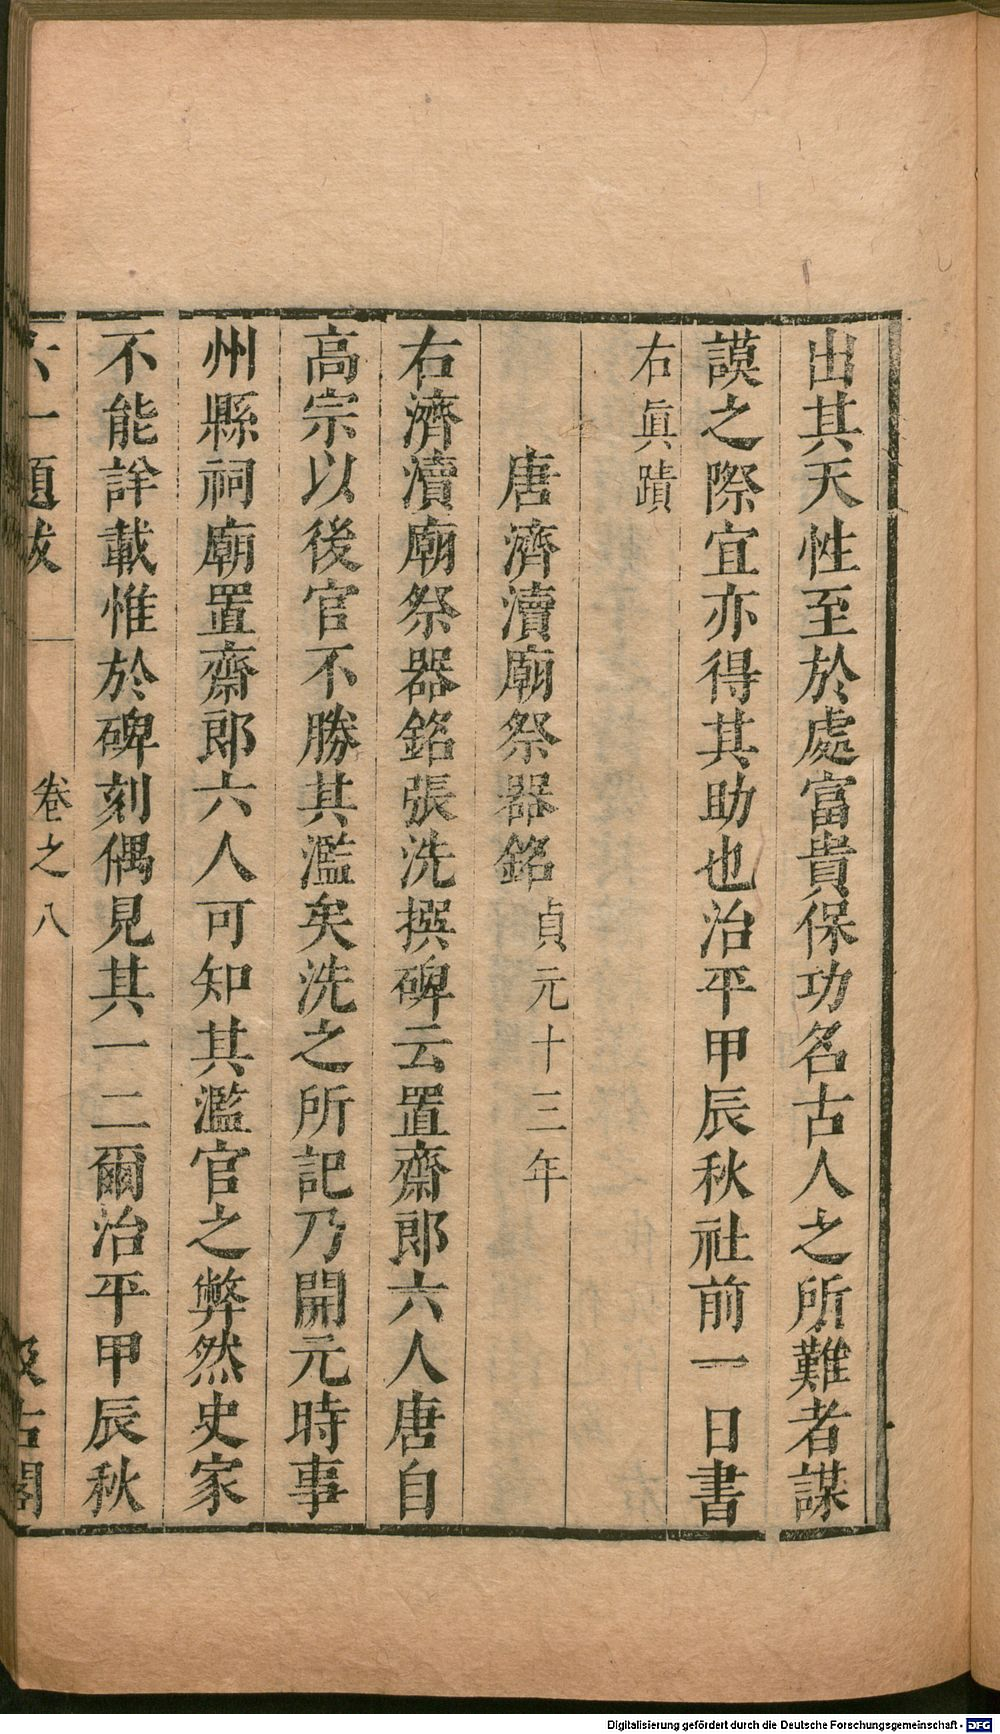 出其天性至於處富貴保功名古人之所難者謀
謨之際宜亦得其助也治平甲辰秋社前一日書
右眞蹟
唐濟瀆廟祭器銘貞元十三年
右濟瀆廟祭器銘張洗撰碑云置齋郎六人唐自
高宗以後官不勝其濫矣洗之所記乃開元時事
州縣祠廟置齋郎六人可知其濫官之弊然史家
不能詳載惟於碑刻偶見其一二爾治平甲辰秋
六一題跋 卷之八 汲古閣
Digitalisierung gefördert durch die Deutsche Forschungsgemeinschaft - DFG